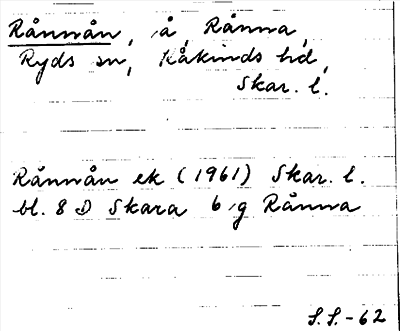 Rånnån, å, Rånna,
Ryds sn, Kåkinds hd,
Skar. l.
Rånnån ek (1961) Skar. l.
bl. 8 D Skara 6 g Rånna
S.S.-62